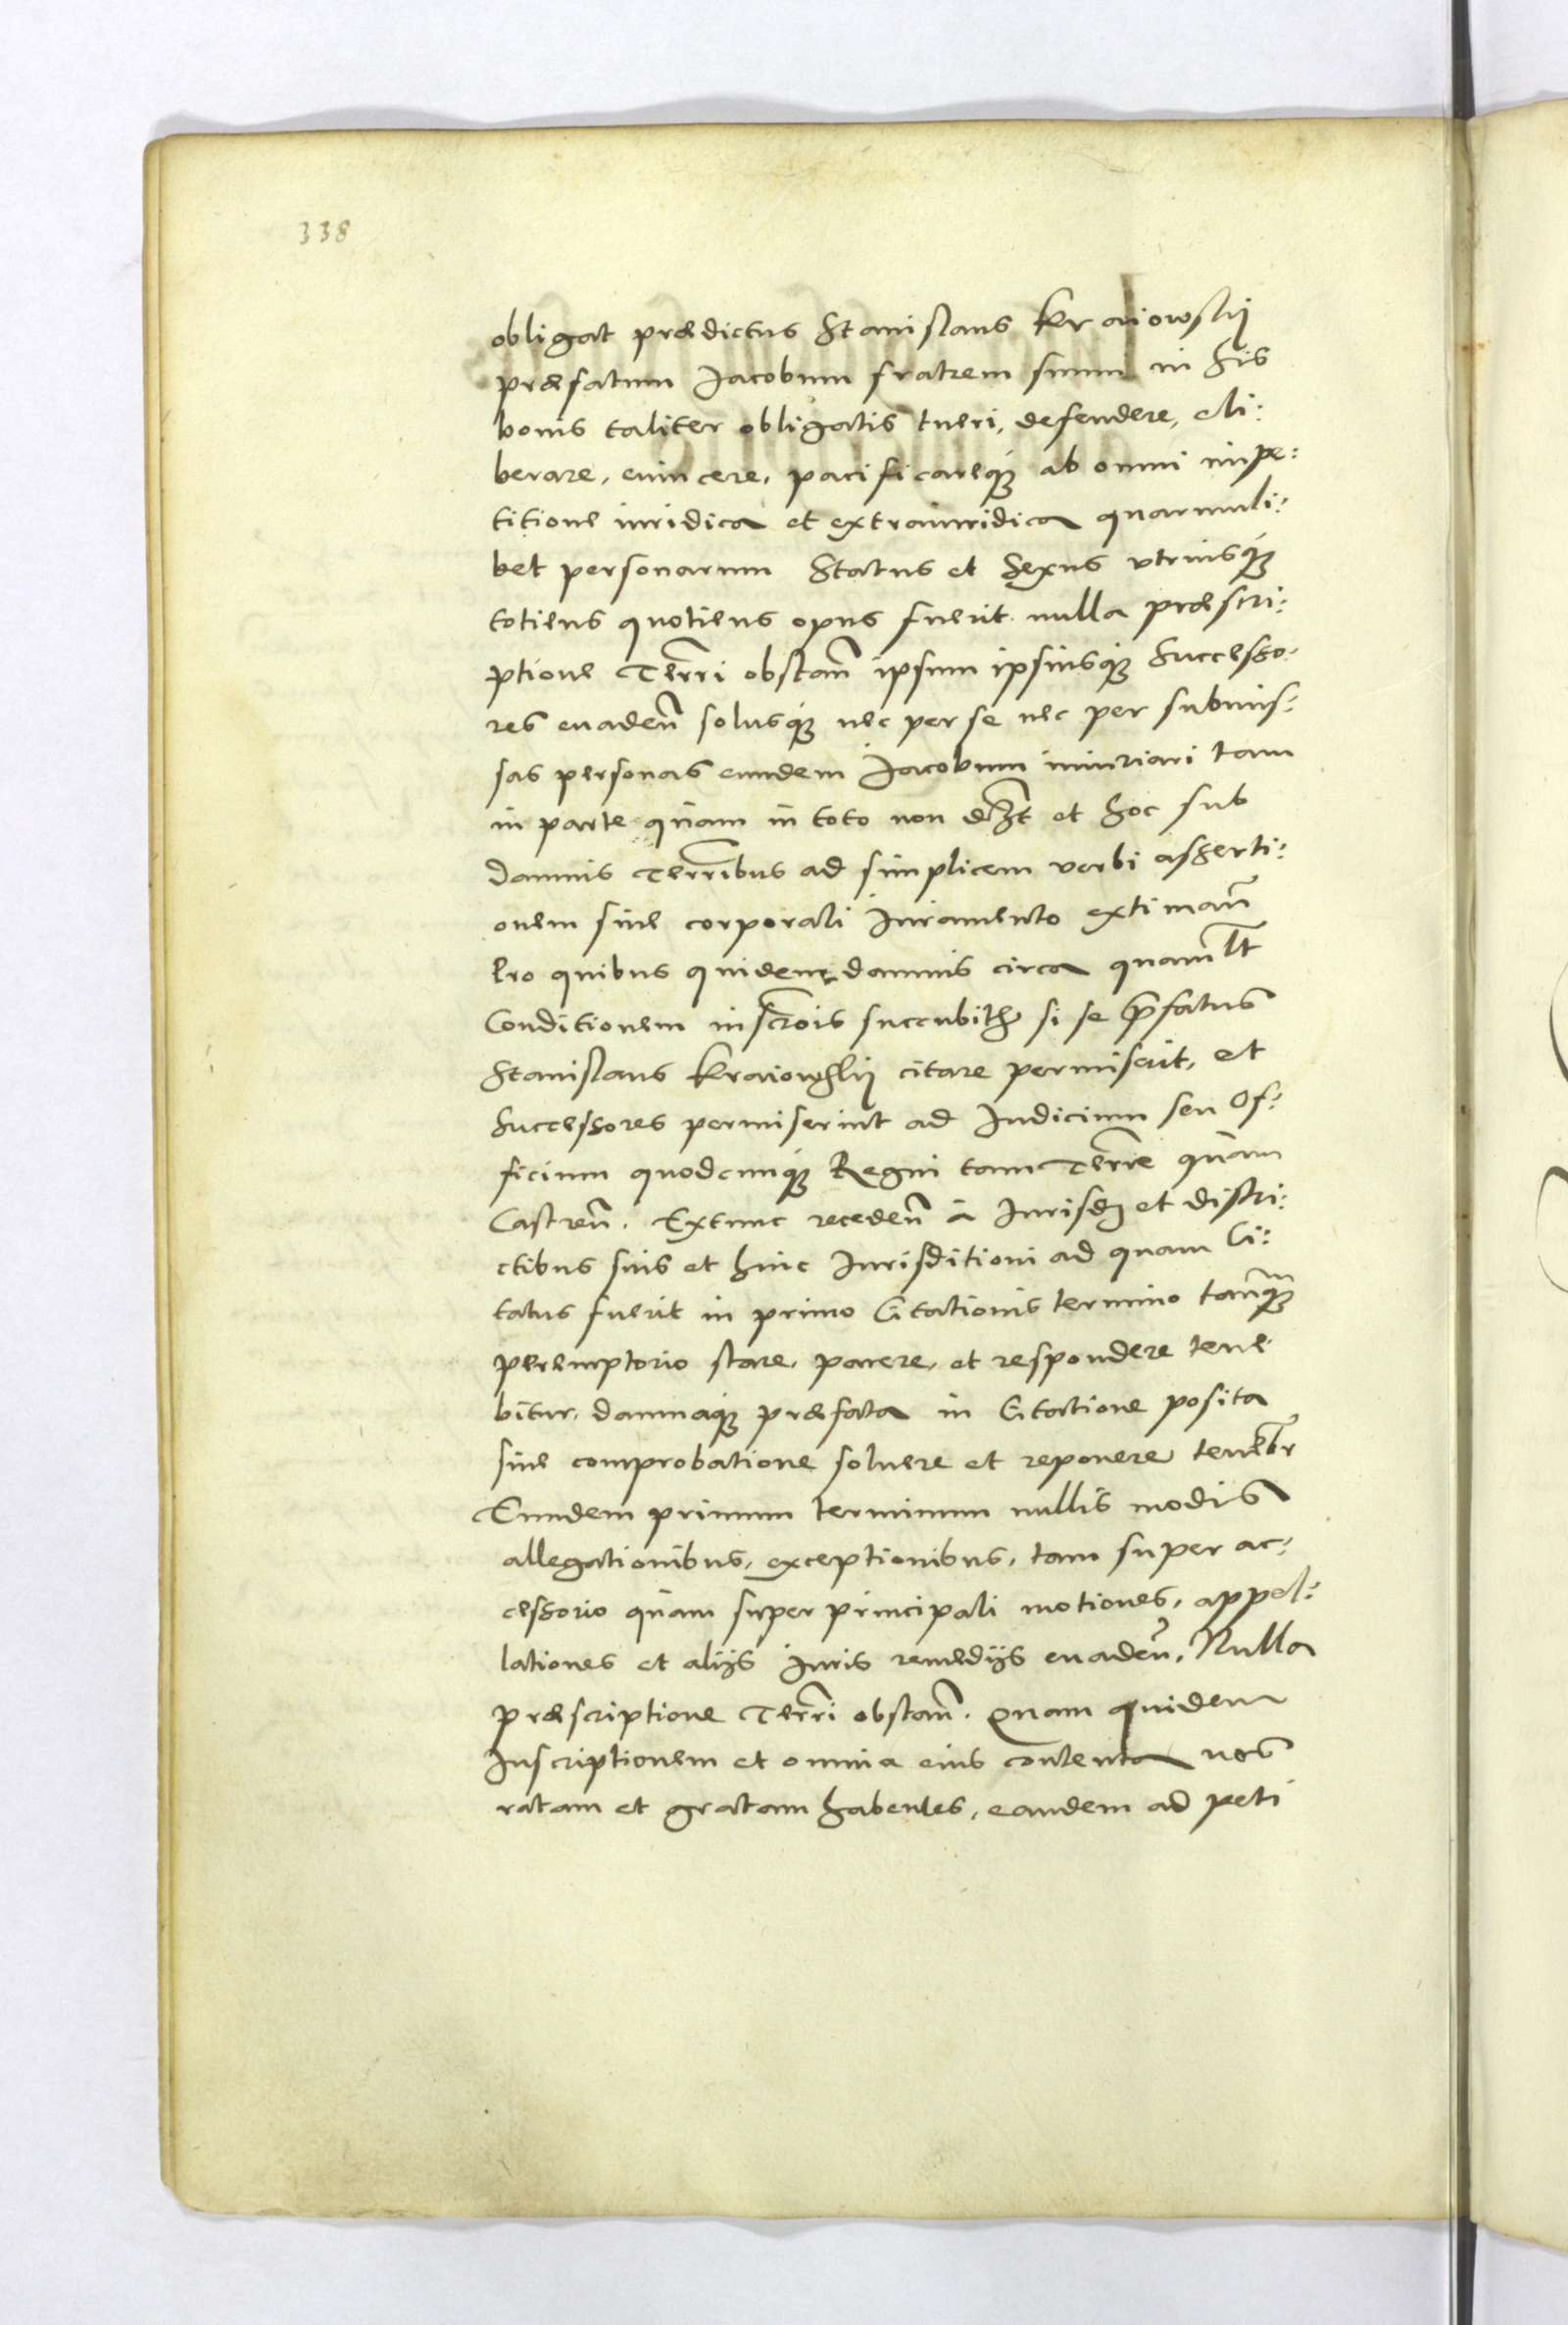 338
obligat prædictus Stanislaus Kraiowskij
præfatum Jacobum fratrem suum in his
bonis taliter obligatis tueri, defendere, eli:
berare, euincere, pacificareq́ue ab omni impe:
titione iuridica et extraiuridica quarumli:
bet personarum Status et Sexus vtriusq́ue
totiens quotiens opus fuerit nulla præscri:
ptione Terr̃i obstañ ipsum ipsiusq́ue Successo:
res euadeñ solusq́ue nec per se nec per submis:
sas personas eundem Jacobum iniuriari tam
in parte quàm in toto non et hoc sub
damnis Terr̃ibus ad simplicem verbi asserti:
onem sine corporali Juramento extimañ
Pro quibus quidem damnis circa quamlt̃
Conditionem inscr̃ois si se p̃fatus
Stanislaus Kraiowskij citare permiserit, et
Successores permiserint ad Judicium seu Of:
ficium quodcunq́ue Regni tam Terr̃e quàm
Castreñ. Extunc recedeñ à Jurisd et distri:
ctibus suis et huic Jurisditioni ad quam Ci:
tatus fuerit in primo Citationis termino tanq̃
peremptorio stare, parere, et respondere tene
bitur, damnaq́ue præfata in Citatione posita
sine comprobatione soluere et reponere tenebr̃
Eundem primum terminum nullis modis
allegationibus, exceptionibus, tam super ac:
cessorio quàm super principali motiones, appel:
lationes et alijs Juris remedijs euadeñ, Nulla
præscriptione Terr̃i obstañ. Quam quidem
Inscriptionem et omnia eius contenta nos
ratam et gratam habentes, eandem ad peti